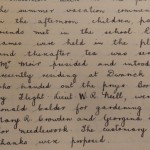 summer vacation comm
the afternoon children, pa
ends met in the school
ames were held in the pl
and thereafter tea was
Mr Moir presided and introdu
recently residing at Dwanch
who handed out the prizes Boo
by Flight Lieut W. R. Hall, wer
onald Calder for gardening
ary R. Crowden and Georgina
for needlework. The customary
thanks were proposed.